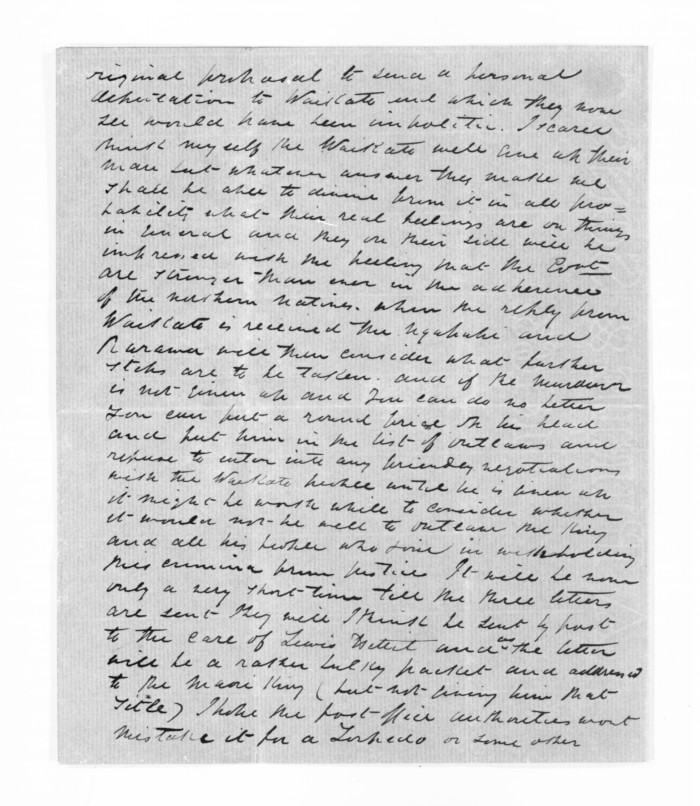 riginal proposal to send a personal
deputation to Waikato and which they now
see would have been impolitic. I scarce
think myself the Waikato will give up their
man but whatever answer they make we
shall be able to divine from it in all pro=
bability what their real feelings are on things
in general and they on their side will be
impressed with the feeling that the Govt
are stronger than ever in the adherence
of the northern natives. When the reply from
Waikato is received the Ngapuhi and
Rarawa will then consider what further
steps are to be taken. and if the murderer
is not given up and you can do no better
you can put a round price on his head
and put him in the list of outlaws and
refuse to enter into any friendly negotiations
with the Waikato people until he is given up
it might be worth while to consider whether
it would not be well to outlaw the King
and all his people who join in withholding
this criminal from justice It will be now
only a very short time till the three letters
are sent they will I think be sent by post
to the care of Lewis and as the letter
will be a rather bulky packet and addressed
to the Maori King (but not giving him that
title) I hope the post office authorities wont
mistake it for a Torpedo or some other